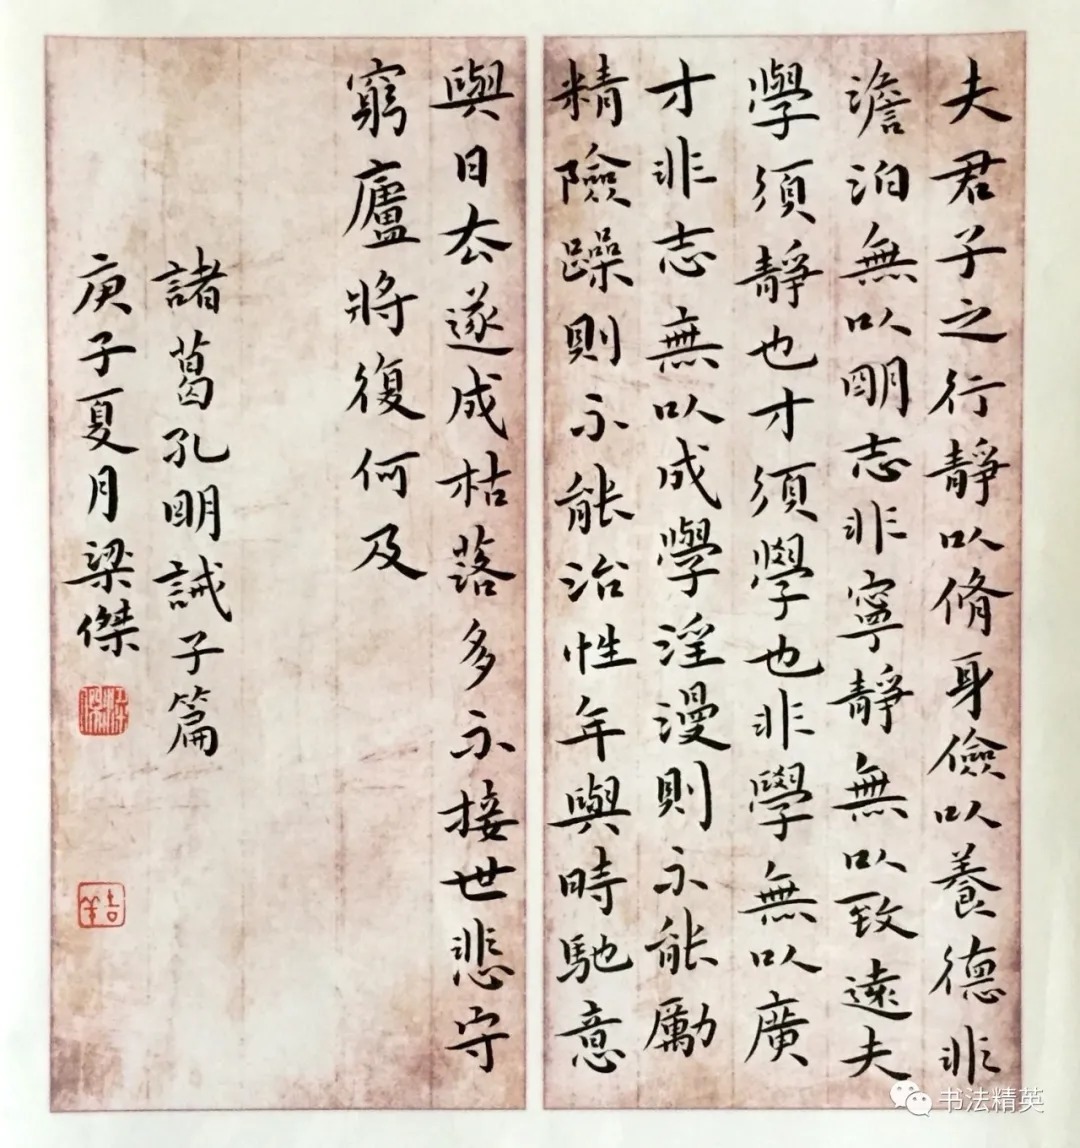 夫君子之行靜以脩身儉以養德非
澹泊無以明志非寧靜無以致遠夫
學須靜也才須學也非學無以廣
才非志無以成學淫漫則不能勵
精險躁則不能治性年與時馳意
與日去遂成枯落多不接世悲守
窮廬將復何及
諸葛孔明誡子篇
庚子夏月梁傑
书法精英